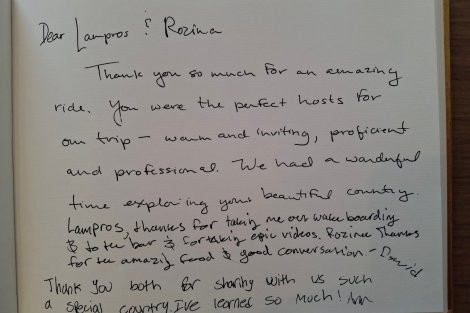 Dear Lampros & Rozina
Thank you so much for an amazing
ride. You were the perfect hosts for
our trip – warm and inviting, proficient
and professional. We had a wonderful
time exploring your beautiful country.
Lampros, thanks for taking me out wakeboarding
& to the bar & for taking epic videos. Rozina Thanks
for the amazing food & good conversation – David
Thank you both for sharing with us such
a special country. I've learned so much!